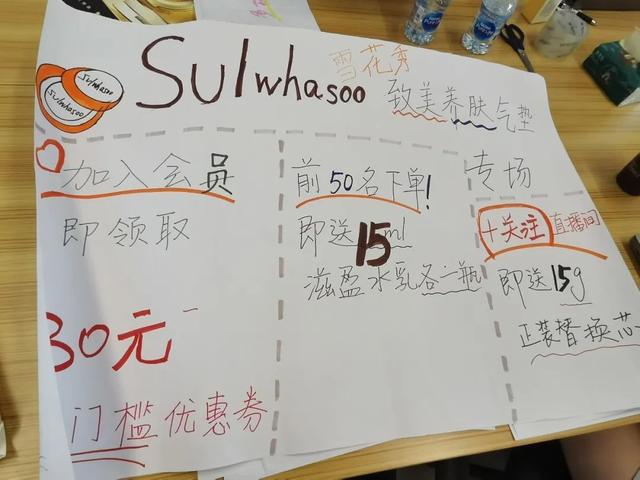 Sulwhasoo
Sulwhasoo
Sulwhasoo 雪花秀
致美养肤气垫
加入会员
即领取
30元
门槛优惠券
前50名下单!
即送15ml
滋盈水乳各一瓶
专场
+关注直播间
即送15g
正装替换芯